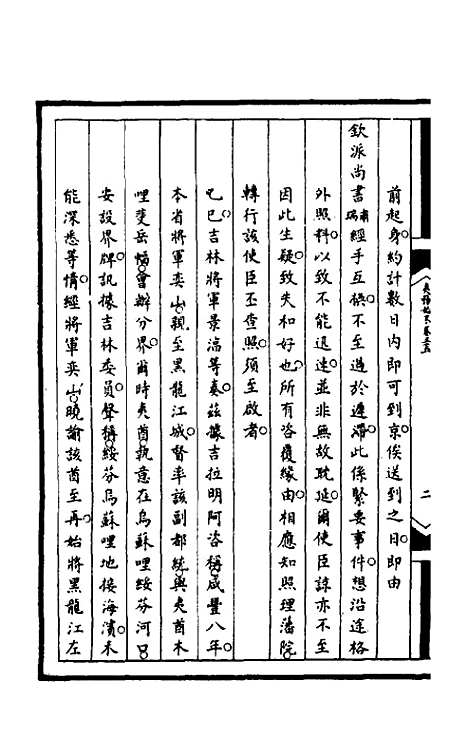 前起身約計數日内即可到京俟送到之日即由
欽派尚書肅瑞經手互換不至過於遲滯此係緊要事件想沿途格
外照料以致不能迅速並非無故耽延爾使臣諒亦不至
因此生疑致失和好也所有咨覆緣由相應知照理藩院
轉行該使臣丕查照須至啟者
乙巳吉林將軍景淳等奏茲據吉拉明阿咨稱咸豐八年
本省將軍奕山親至黑龍江城督率該副都統與夷酋木
哩斐岳幅會辦分界爾時夷酋執意在烏蘇哩綏芬河口
安設界牌訊據吉林委員聲稱綏芬烏蘇哩地接海濱未
能深悉等情經將軍奕山曉諭該酋至再始將黑龍江左
夷務始末卷三五
二